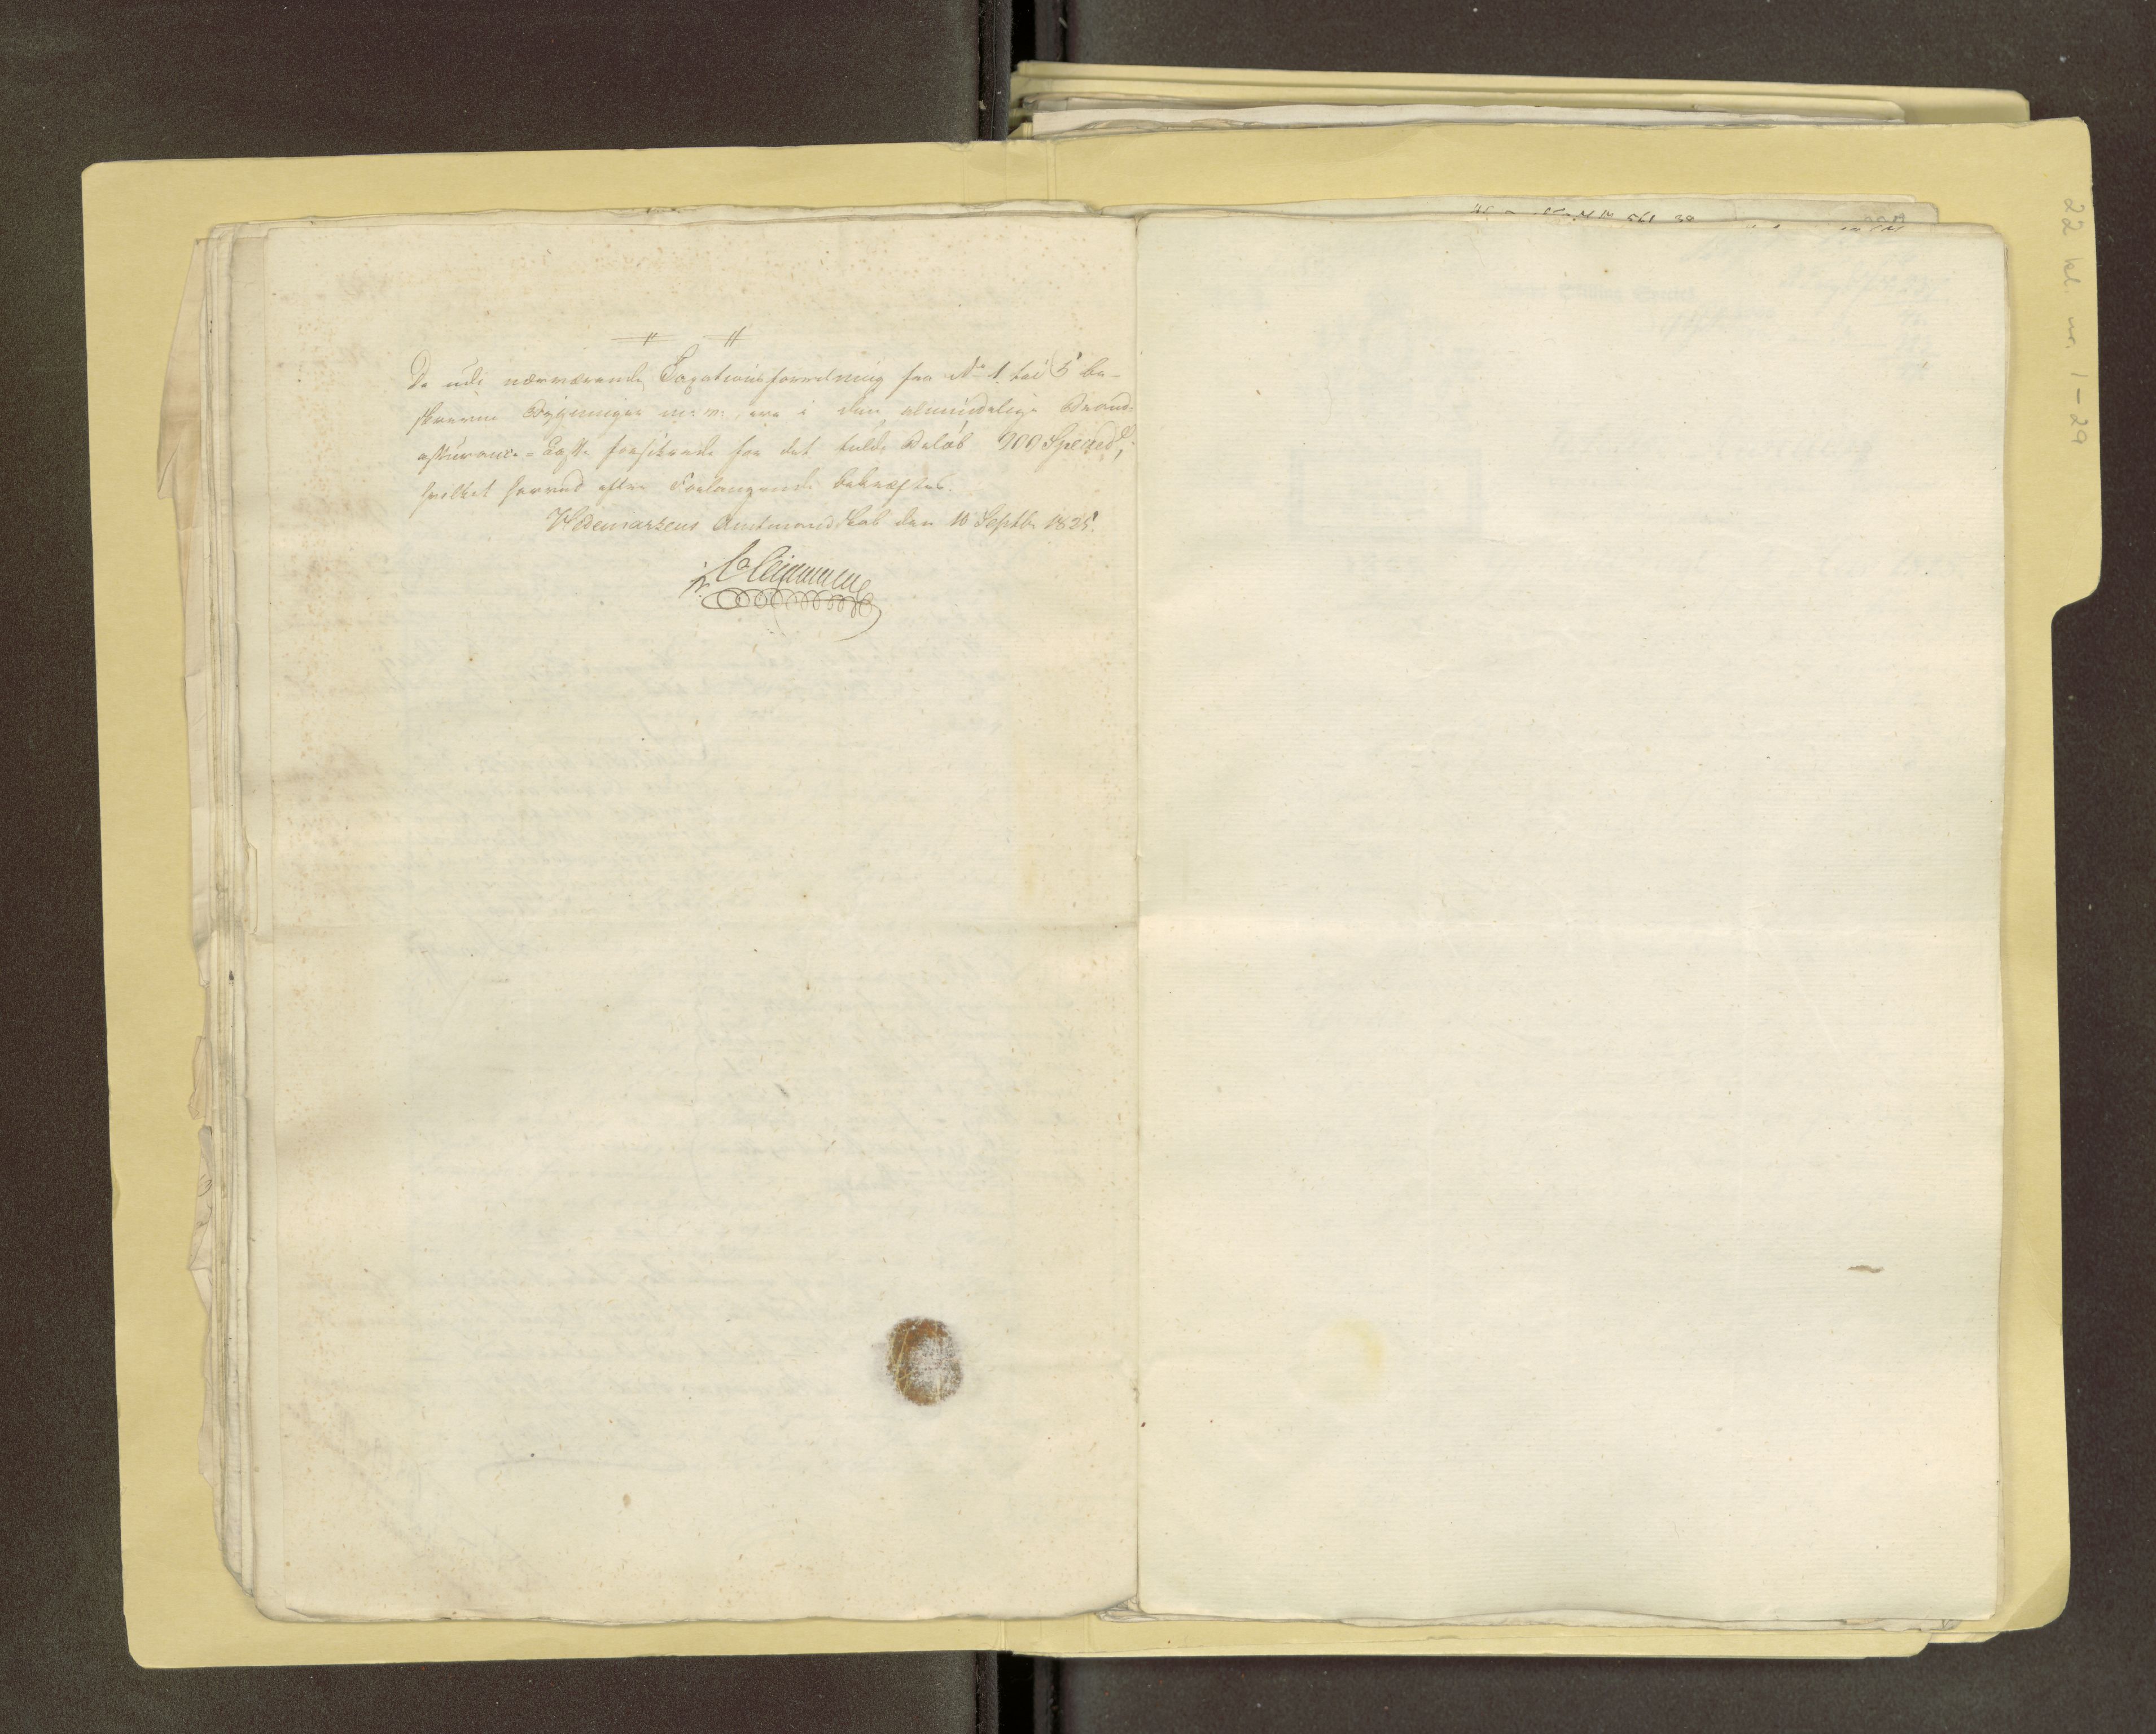 De udi nærværende Taxationsforretning fra No 1 til 5 be-
skrevne Bygninger m: v: ere i den almindelige Brand-
assurance-Casse forsikrede for det fulde Beløb 900 Specied;
hvilket herved efter Forlangende bekræftes.
Hedemarkens Amtmandskab den 10 Septbr 1825.
22 kl. nr. 1-29